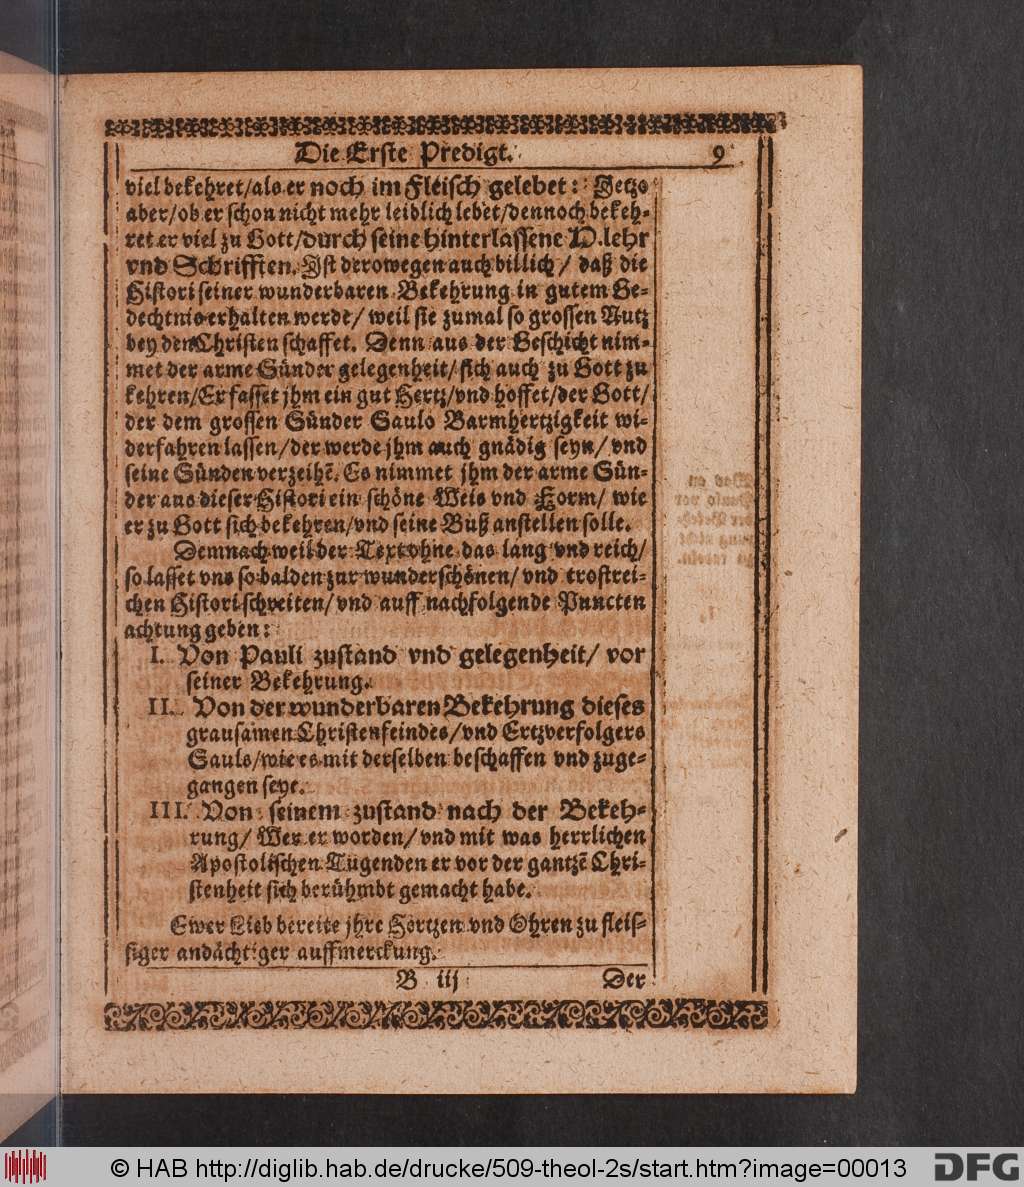 Die Erste Predigt. 9
viel bekehret/als er noch im Fleisch gelebet: Jetzo
aber/ob er schon nicht mehr leiblich lebet/dennoch bekeh-
ret er viel zu Gott/durch seine hinterlassene H.lehr
vnd Schrifften. Ist derowegen auch billich/ daß die
Histori seiner wunderbaren Bekehrung in gutem Ge-
dechtnis erhalten werde/ weil sie zumal so grossen Nutz
bey den Christen schaffet. Denn aus der Geschicht nim-
met der arme Sünder gelegenheit/ sich auch zu Gott zu
kehren/Er fasset jhm ein gut Hertz/vnd hoffet/der Gott/
der dem grossen Sünder Saulo Barmhertzigkeit wi-
derfahren lassen/der werde jhm auch gnädig seyn/ vnd
seine Sünden verzeihẽ. Es nimmet jhm der arme Sün-
der aus dieser Histori ein schöne Weis vnd Form/ wie
er zu Gott sich bekehren/vnd seine Buß anstellen solle.
Demnach weil der Text ohne das lang vnd reich/
so lasset vns so balden zur wunderschönen/ vnd trostrei-
chen Histori schreiten/ vnd auff nachfolgende Puncten
achtung geben:
I. Von Pauli zustand vnd gelegenheit/ vor
seiner Bekehrung.
II. Von der wunderbaren Bekehrung dieses
grausamen Christenfeindes/vnd Ertzverfolgers
Sauls/wie es mit derselben beschaffen vnd zuge-
gangen seye.
III. Von seinem zustand nach der Bekeh-
rung/ Wer er worden/ vnd mit was herrlichen
Apostolischen Tugenden er vor der gantzẽ Chri-
stenheit sich berühmbt gemacht habe.
Ewer Lieb bereite jhre Hertzen vnd Ohren zu fleis-
siger andächtiger auffmerckung.
B iij Der
© HAB http://diglib.hab.de/drucke/509-theol-2s/start.htm?image=00013
DFG